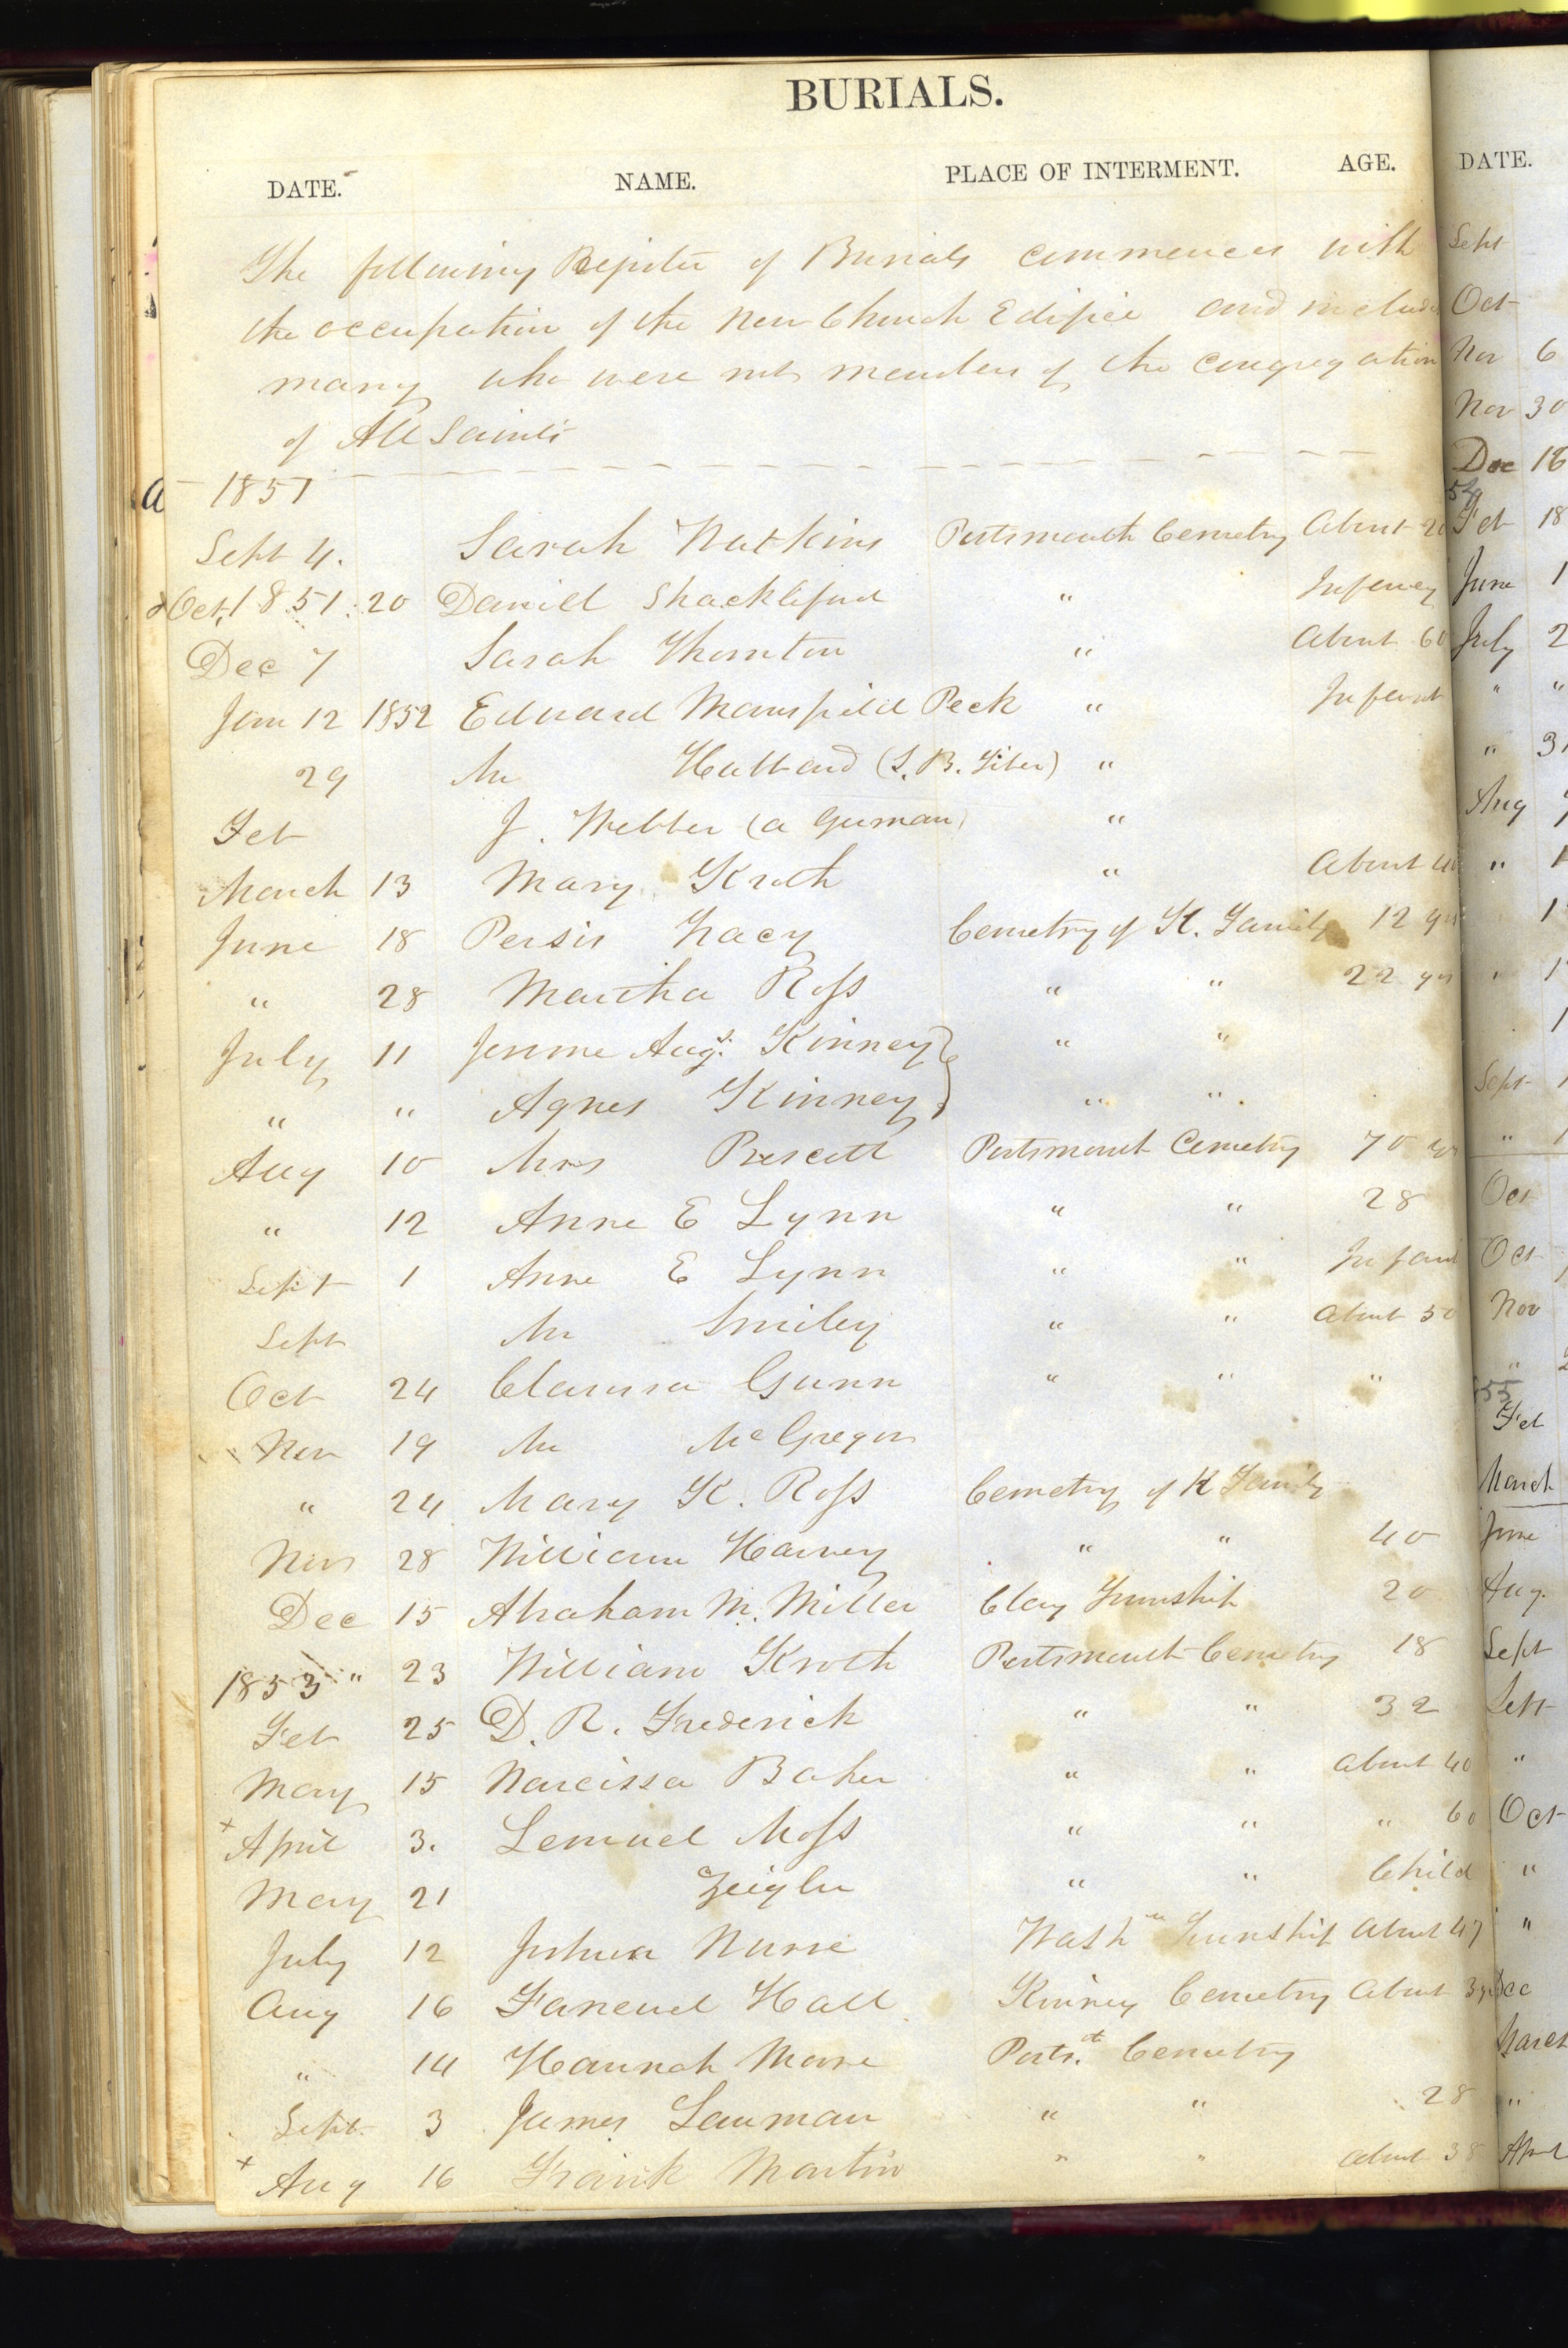 BURIALS.
DATE. NAME. PLACE OF INTERMENT. AGE.
The following Register of Burials commences with
the occupation of the New Church Edifice and includes
many who were not members of the congregation
of All Saints
a 1851
Sept 4. Sarah Watkins Portsmouth Cemetery About 20
Oct, 1851. 20 Daniel Shackleford " Infancy
Dec 7 Sarah Thornton " About 60
Jan 12 1852 Edward Mansfield Peck " Infant
29 Mr Hubbard (S. B. ) "
Feb J. Webber (a German) "
March 13 Mary Kroth " About 40
June 18 Persis Tracy Cemetry of K. Family 12 yrs
" 28 Martha Ross " " 22 yrs
July 11 Jennie Augs. Kinney " "
" " Agnes Kinney " "
Aug 10 Mrs Prescott Portsmouth Cemetry 70 yrs
" 12 Anne E Lynn " " 28
Sept 1 Anne E Lynn " " Infant
Sept Mr Smiley " " About 50
Oct 24 Clarissa Gunn " " "
Nov 19 Mr McGregor
" 24 Mary K. Ross Cemetry of K Family
Nov 28 William Harvey " " 40
Dec 15 Abraham M. Miller Clay Township 20
1853 " 23 William Kroth Portsmouth Cemetry 18
Feb 25 D. R. Frederick " " 32
May 15 Narcissa Baker " " about 40
x April 3. Lemuel Moss " " " 60
May 21 Zeigler " " Child
July 12 Joshua Nurse Washn Township About 47
Aug 16 Faneuel Hall Kinney Cemetry About
" 14 Hannah More Ports.th Cemetry
Sept. 3 James Lauman " " 28
x Aug 16 Frank Martin " " about 38
DATE.
Sept
Oct
Nov 6
Nov 30
Dec 18
54
Feb 18
June 1
July 2
" "
" 3
Aug
" 1
1
" 1
1
Sept 1
" 1
Oct
Oct
Nov
"
55
Feb
March
June
Aug.
Sept
Sept
"
Oct
"
"
Dec
March
"
April